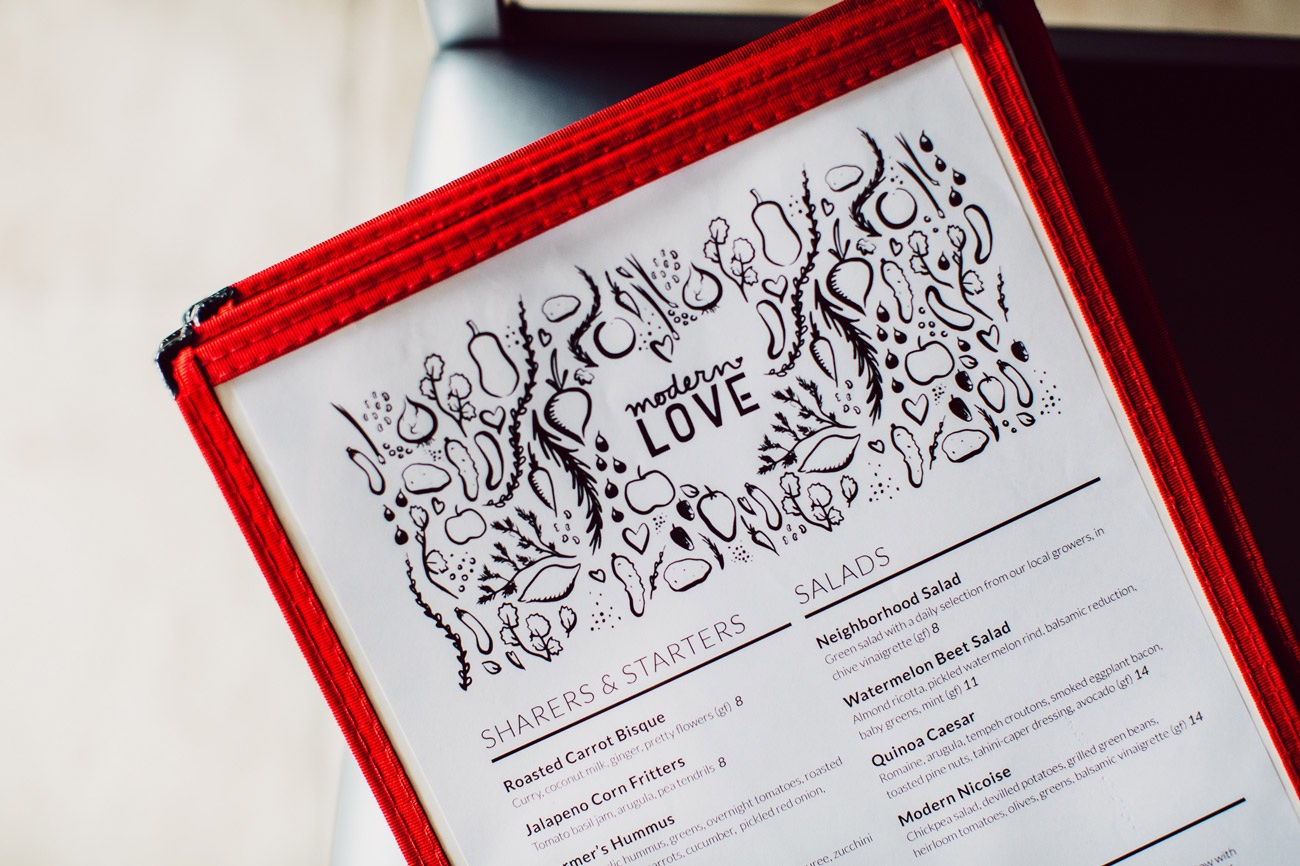 modern
LOVE
SHARERS & STARTERS
Roasted Carrot Bisque
Curry, coconut milk, ginger, pretty flowers (gf) 8
Jalapeno Corn Fritters
Tomato basil jam, arugula, pea tendrils 8
rmer's Hummus
lic hummus, greens, overnight tomatoes, roasted
arrots, cucumber, pickled red onion,
uree, zucchini
SALADS
Neighborhood Salad
Green salad with a daily selection from our local growers, in
chive vinaigrette (gf) 8
Watermelon Beet Salad
Almond ricotta, pickled watermelon rind, balsamic reduction,
baby greens, mint (gf) 11
Quinoa Caesar
Romaine, arugula, tempeh croutons, smoked eggplant bacon,
toasted pine nuts, tahini-caper dressing, avocado (gf) 14
Modern Nicoise
Chickpea salad, devilled potatoes, grilled green beans,
heirloom tomatoes, olives, greens, balsamic vinaigrette (gf) 14
with